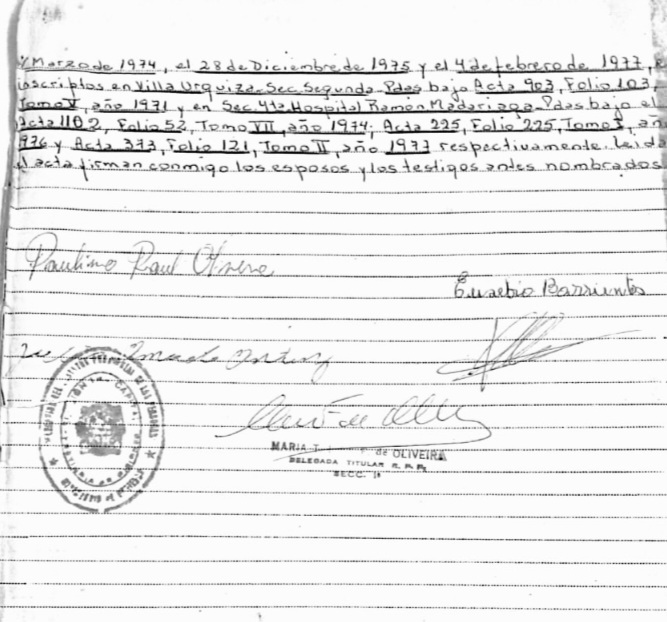 Marzo de 1974, el 28 de Diciembre de 1975 y el 4 de febrero de 1977, e
inscriptos en Villa Urquiza. Sec. Segunda. Pdas bajo Acta 903, Folio 103,
Tomo V, año 1971 y en Sec. 4ta Hospital Ramón Madariaga. Pdas bajo el
Acta 1102, Folio 52, Tomo VII, año 1974; Acta 225, Folio 225, Tomo I, añ
976 y Acta 373, Folio 121, Tomo II, año 1977 respectivamente. Leida
l acta firman conmigo los esposos y los testigos antes nombrados.
Paulino Raul
Eusebio Barrientos
MARIA T. de OLIVEIRA
DELEGADA TITULAR R. P. P.
SECC. 1ª